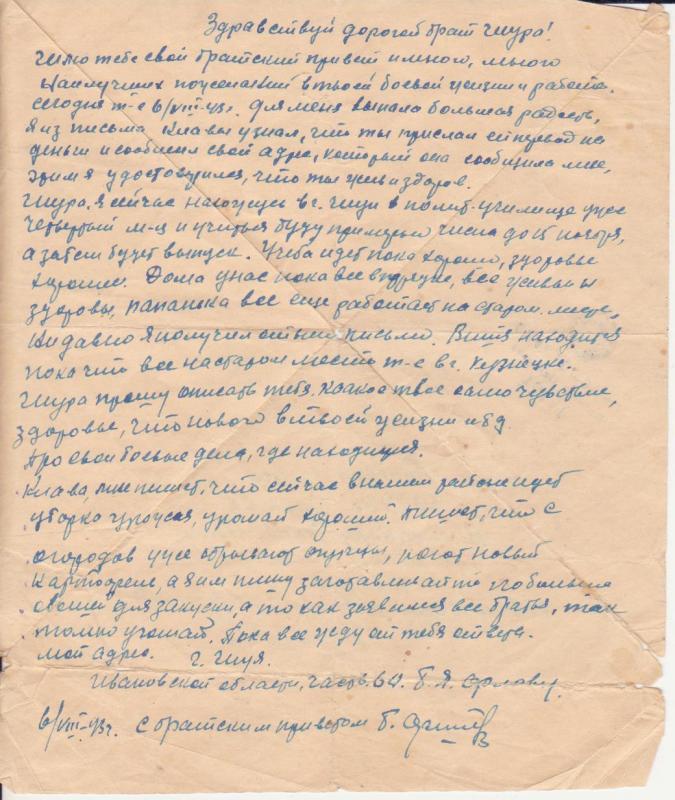 Здравствуй дорогой брат Шура!
Шлю тебе свой братский привет и много, много
наилучших пожеланий в твоей боевой жизни и работе.
Сегодня т-е 6/VIII-43г. для меня выпала большая радость,
я из письма Клавы узнал, что ты прислал ей перевод на
деньги и сообщил свой адрес, который она сообщила мне,
этим я удостоверился, что ты жив и здоров.
Шура, я сейчас нахожусь в г. Шуи в полит-училище уже
четвертый м-ц и учиться буду примерно числа до 15 ноября,
а затем будет выпуск. Учеба идет пока хорошо, здоровье
хорошее. Дома у нас пока все в порядке, все живы и
здоровы, папанька все еще работает на старом месте,
недавно я получил от них письмо. Витя находится
пока что все на старом месте т-е в г. Кузнецке.
Шура прошу описать тебя, каково твое самочувствие,
здоровье, что нового в твоей жизни и б д.
Про свои боевые дела, где находишься.
Клава мне пишет, что сейчас в нашем районе идет
уборка урожая, урожай хороший. Пишет, что с
огородов уже обрывают огурцы, роют новый
картофель, а я им пишу заготавливайте побольше
овощей для закуски, а то как заявимся все братья, так
только угощай. Пока все жду от тебя ответа.
Мой адрес. г. Шуя.
Ивановской области, часть 64. Б. Я. Орлову.
6/VIII-43г. с братским приветом Б.